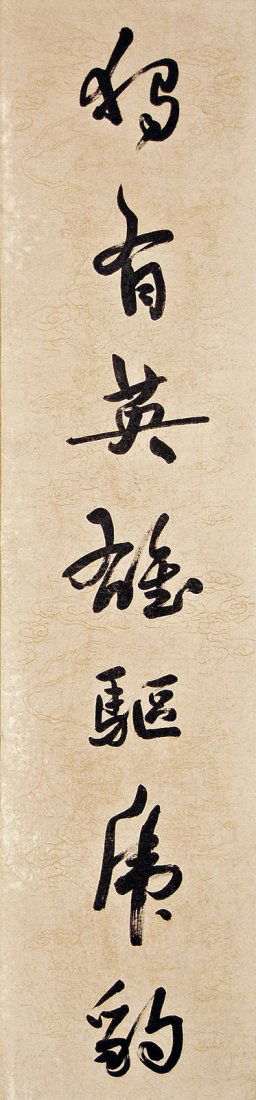 独有英雄驅虎豹